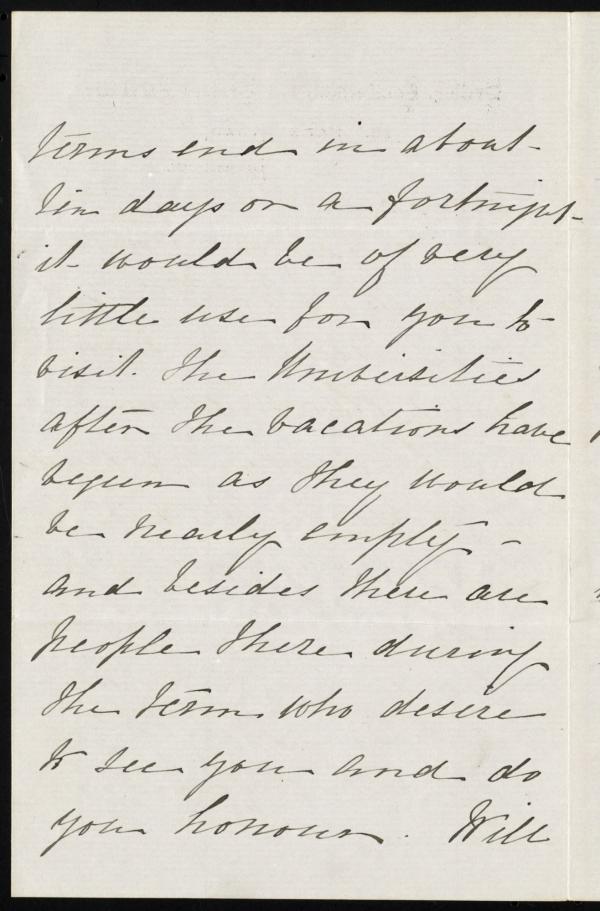 terms end in about
ten days or a fortnight
it would be of very
little use for you to
visit. The Universities
after the vacations have
begun as they would
be nearly empty –
and besides there are
people there during
the term who desire
to see you and do
you honour. Will